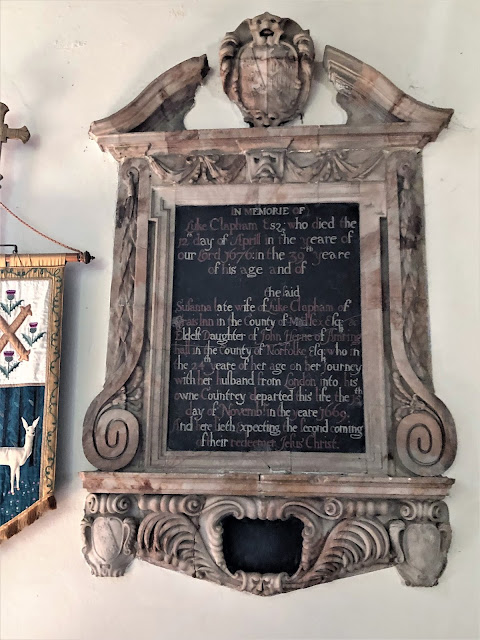 IN MEMORIE OF
Luke Clapham Esq; who died the
12th day of April in the yeare of
our Lord 1676: in the 39th yeare
of his age and of
the said
Susanna late wife of Luke Clapham of
Grais Inn in the County of Midlesex Esq;
Eldest Daughter of John Herne of
hall in the County of Norfolke Esq; who in
the 24th yeare of her age on her Journey
with her husband from London into his
owne Countrey departed this life the
day of Novembr in the yeare 1669.
And here lieth Expecting the second coming
of their redeemer Jesus Christ.